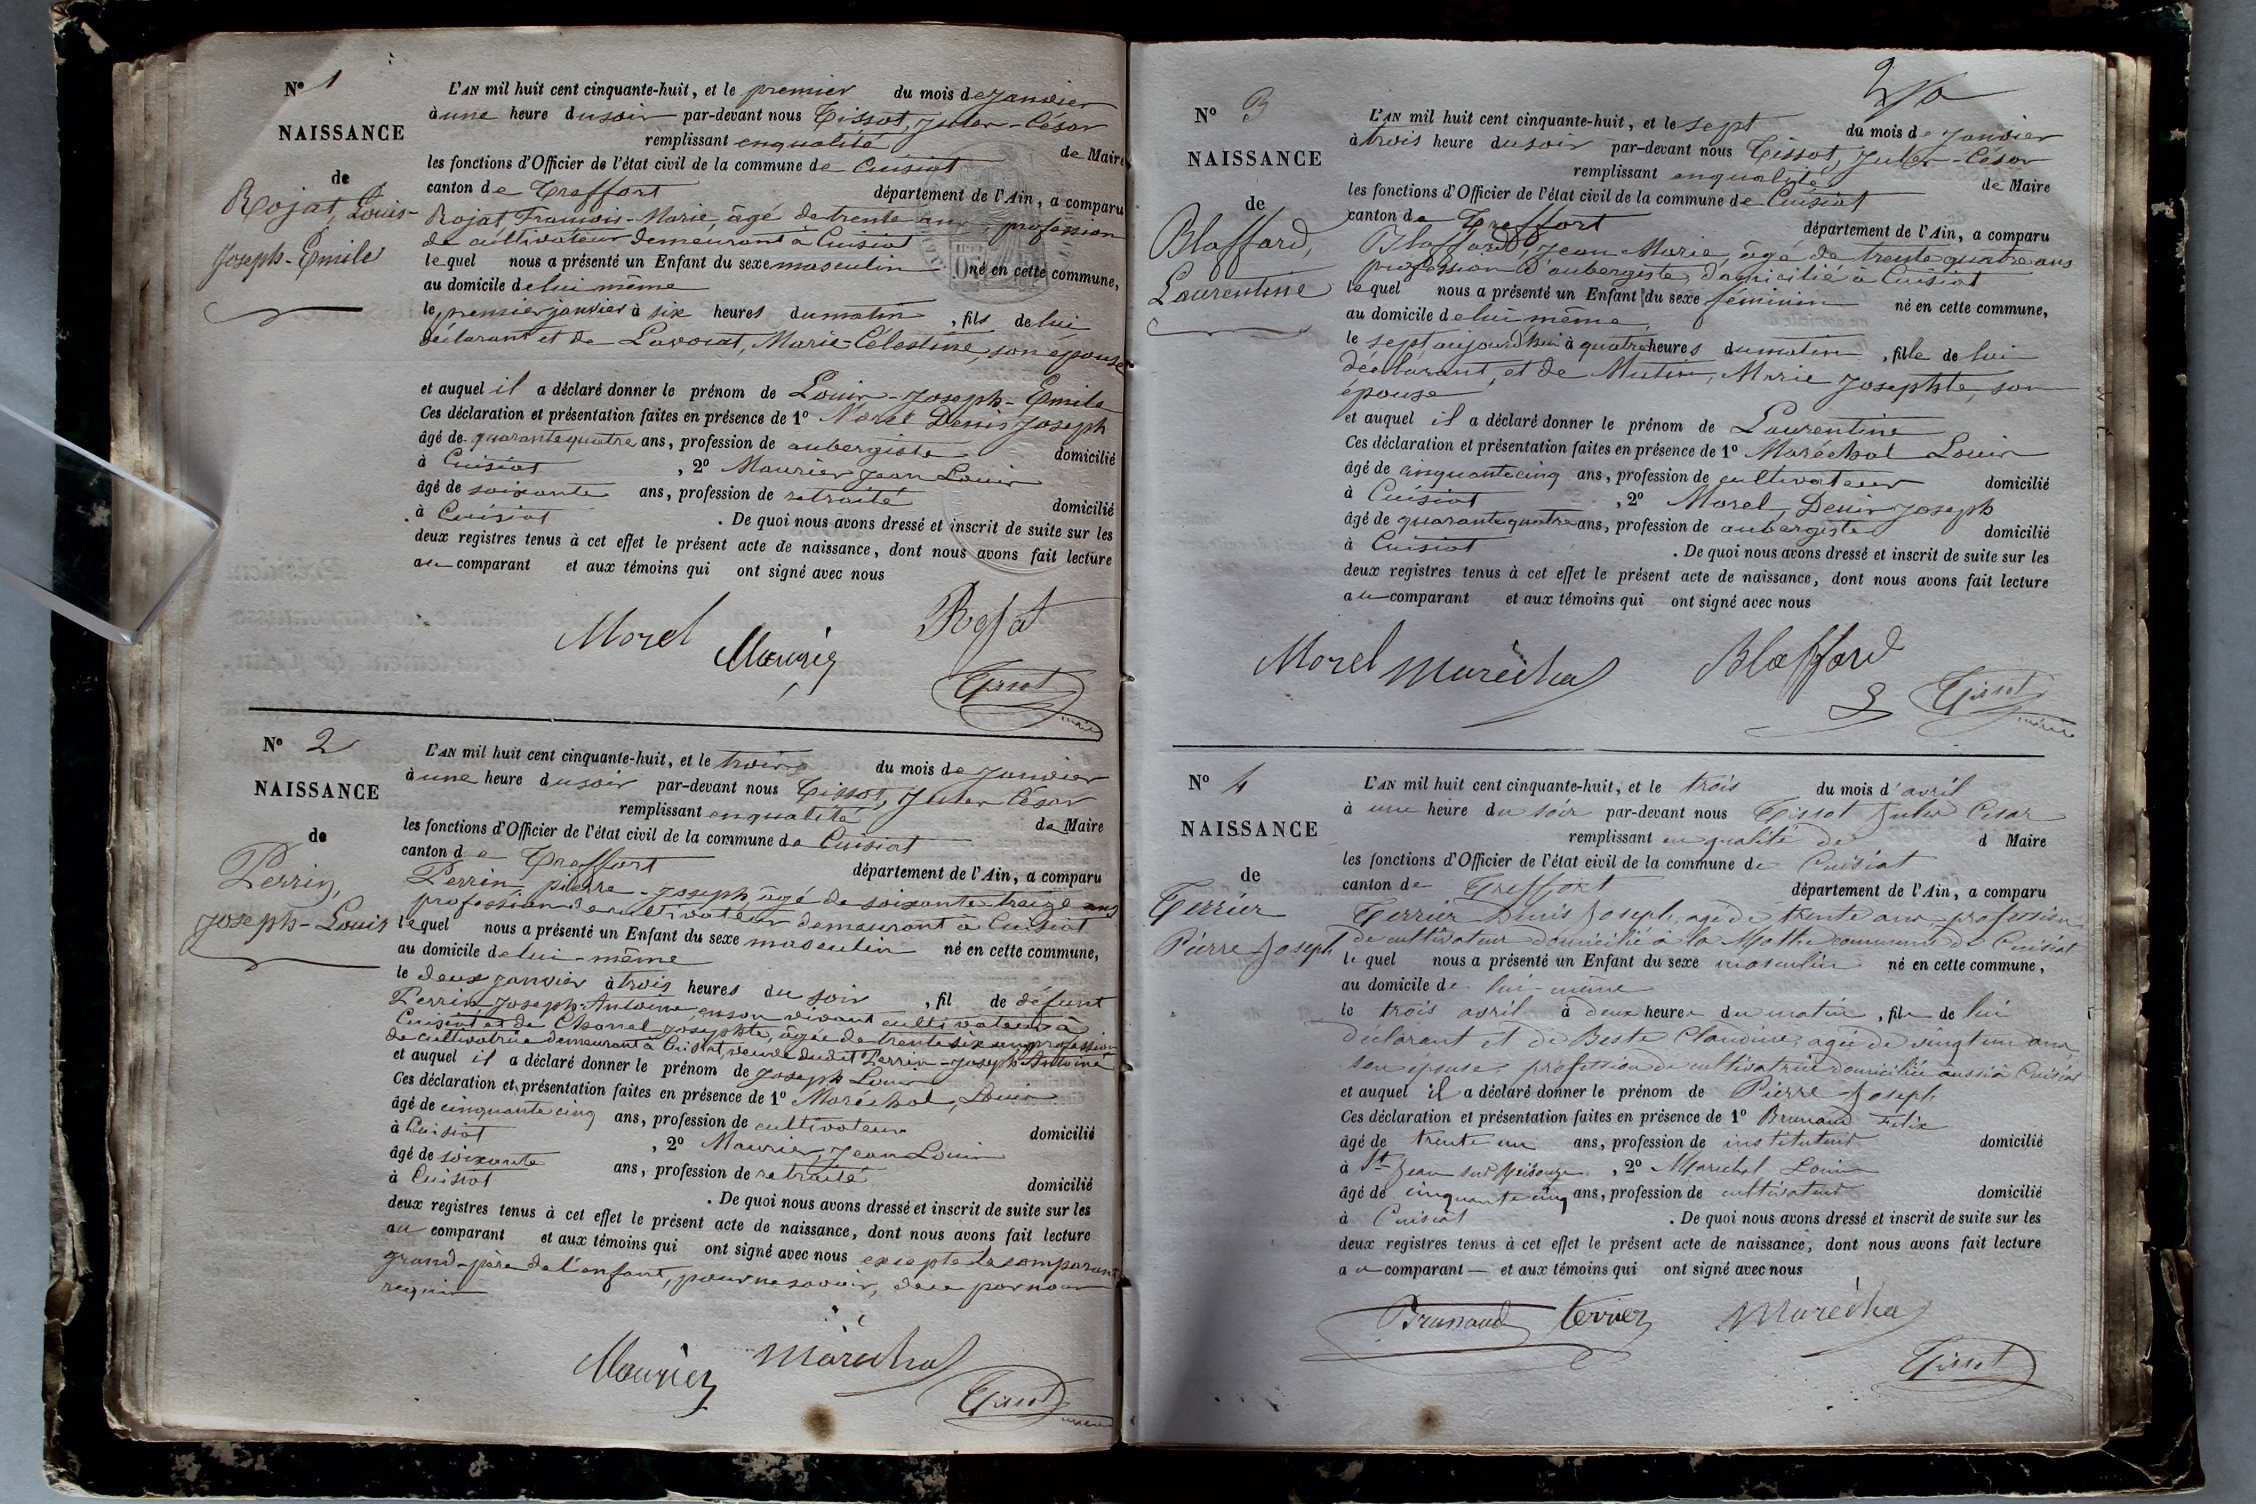 N° 1
NAISSANCE
de
Rojat, Louis-
Joseph-Émile
L'AN mil huit cent cinquante-huit, et le premier du mois de janvier
à une heure du soir par-devant nous Tissot, Jules-César
remplissant en qualité de Maire
les fonctions d'Officier de l'état civil de la commune de Cuisiat
canton de Treffort département de l'Ain, a comparu
Rojat, François-Marie, âgé de trente ans, profession
de cultivateur demeurant à Cuisiat
lequel nous a présenté un Enfant du sexe masculin né en cette commune,
au domicile de lui même
le premier janvier à six heures du matin, fils de lui
déclarant et de Lavocat, Marie-Célestine, son épouse
et auquel il a déclaré donner le prénom de Louis-Joseph-Émile
Ces déclaration et présentation faites en présence de 1° Morel Denis Joseph
âgé de quarante quatre ans, profession de aubergiste domicilié
à Cuisiat, 2° Maurier Jean Louis
âgé de soixante ans, profession de retraité domicilié
à Cuisiat. De quoi nous avons dressé et inscrit de suite sur les
deux registres tenus à cet effet le présent acte de naissance, dont nous avons fait lecture
au comparant et aux témoins qui ont signé avec nous
Morel Maurier Rojat
Tissot
maire
N° 2
NAISSANCE
de
Perrin,
Joseph-Louis
L'AN mil huit cent cinquante-huit, et le trois du mois de janvier
à une heure du soir par-devant nous Tissot, Jules César
remplissant en qualité de Maire
les fonctions d'Officier de l'état civil de la commune de Cuisiat
canton de Treffort département de l'Ain, a comparu
Perrin, pierre-Joseph, âgé de soixante treize ans
profession de cultivateur demeurant à Cuisiat
lequel nous a présenté un Enfant du sexe masculin né en cette commune,
au domicile de lui-même
le deux janvier à trois heures du soir, fil de défunt
Perrin Joseph-Antoine, en son vivant cultivateur à
Cuisiat et de Charnel Josephte, âgée de trente six ans profession
de cultivatrice demeurant à Cuisiat, veuve dudit Perrin-Joseph-Antoine
et auquel il a déclaré donner le prénom de Joseph Louis
Ces déclaration et présentation faites en présence de 1° Maréchal, Louis
âgé de cinquante cinq ans, profession de cultivateur domicilié
à Cuisiat, 2° Maurier, Jean Louis
âgé de soixante ans, profession de retraité domicilié
à Cuisiat. De quoi nous avons dressé et inscrit de suite sur les
deux registres tenus à cet effet le présent acte de naissance, dont nous avons fait lecture
au comparant et aux témoins qui ont signé avec nous excepté le comparant
grand-père de l'enfant, pour ne savoir, de ce par nous
requis
Maurier Maréchal
Tissot
maire
N° 3
NAISSANCE
de
Blaffard,
Laurentine
L'AN mil huit cent cinquante-huit, et le sept du mois de janvier
à trois heure du soir par-devant nous Tissot, Jules-César
remplissant en qualité de Maire
les fonctions d'Officier de l'état civil de la commune de Cuisiat
canton de Treffort département de l'Ain, a comparu
Blaffard, Jean Marie, âgé de trente quatre ans
profession d'aubergiste, domicilié à Cuisiat
lequel nous a présenté un Enfant du sexe féminin né en cette commune,
au domicile de lui même,
le sept aujourd'hui à quatre heures du matin, fille de lui
déclarant, et de Mutin, Marie Josephte, son
épouse
et auquel il a déclaré donner le prénom de Laurentine
Ces déclaration et présentation faites en présence de 1° Maréchal Louis
âgé de cinquante cinq ans, profession de cultivateur domicilié
à Cuisiat, 2° Morel, Denis Joseph
âgé de quarante quatre ans, profession de aubergiste domicilié
à Cuisiat. De quoi nous avons dressé et inscrit de suite sur les
deux registres tenus à cet effet le présent acte de naissance, dont nous avons fait lecture
au comparant et aux témoins qui ont signé avec nous
Morel Maréchal Blaffard
Tissot
maire
N° 4
NAISSANCE
de
Terrier
Pierre Joseph
L'AN mil huit cent cinquante-huit, et le trois du mois d'avril
à une heure du soir par-devant nous Tissot Jules César
remplissant en qualité de d Maire
les fonctions d'Officier de l'état civil de la commune de Cuisiat
canton de Treffort département de l'Ain, a comparu
Terrier Denis Joseph, agé de trente ans profession
de cultivateur domicilié à la Mothe commune de Cuisiat
lequel nous a présenté un Enfant du sexe masculin né en cette commune,
au domicile de lui-même
le trois avril à deux heures du matin, fils de lui
déclarant et de Beste Claudine, agée de vingt un ans,
son épouse, profession de cultivatrice domiciliée aussi à Cuisiat
et auquel il a déclaré donner le prénom de Pierre Joseph
Ces déclaration et présentation faites en présence de 1° Brunaud Félix
âgé de trente un ans, profession de instituteur domicilié
à St Jean sur Reissouze, 2° Maréchal Louis
âgé de cinquante cinq ans, profession de cultivateur domicilié
à Cuisiat. De quoi nous avons dressé et inscrit de suite sur les
deux registres tenus à cet effet le présent acte de naissance, dont nous avons fait lecture
au comparant et aux témoins qui ont signé avec nous
Brunaud terrier Maréchal
Tissot